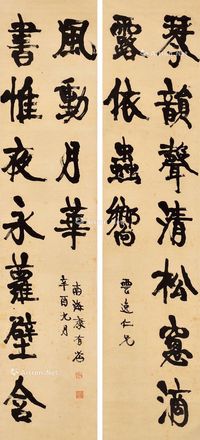 琴韻聲清松窓滴
露依蟲響
仁兄
書惟夜永蘿壁含
風動月華
南海康有為
辛酉九月